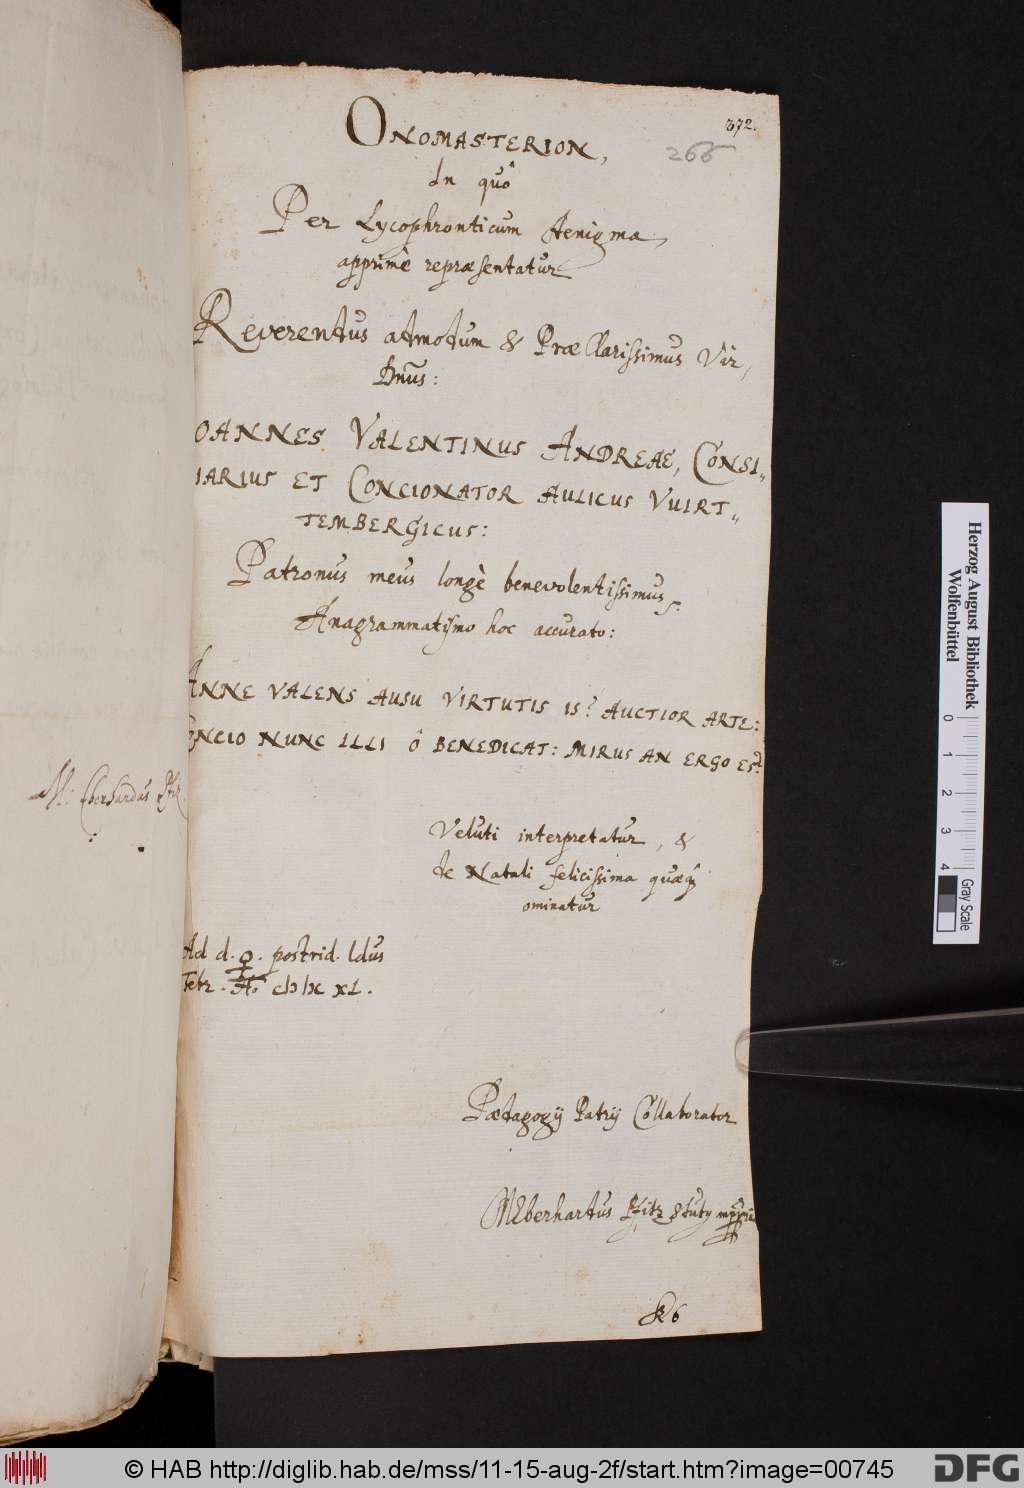 372.
266
ONOMASTERION,
In quô
Per Lycophronticum Aenigma,
apprimè repræsentatur
Reverendus admodum & Præclarissimus Vir,
Dnūs:
OANNES VALENTINUS ANDREAE, CONSI„
IARIUS ET CONCIONATOR AULICUS VUIRT„
TEMBERGICUS:
Patronus meus longè benevolentissimus
Anagrammatismo hoc accurato:
ANNE VALENS AUSU VIRTUTIS IS? AUCTIOR ARTE:
ONCIO NUNC ILLI Ô BENEDICAT: MIRUS AN ERGO EST?
M: Eberhardus
Veluti interpretatur, &
de Natali felicissima quæq3
ominatur
Ad d. ♀. postrid. Idus
Febr. Aō. cIɔ Iɔc XL.
Pædagogij Patrij Collaborator
MEberhartus
K6
Herzog August Bibliothek
Wolfenbüttel
0 1 2 3 4
Gray Scale
© HAB http://diglib.hab.de/mss/11-15-aug-2f/start.htm?image=00745
DFG